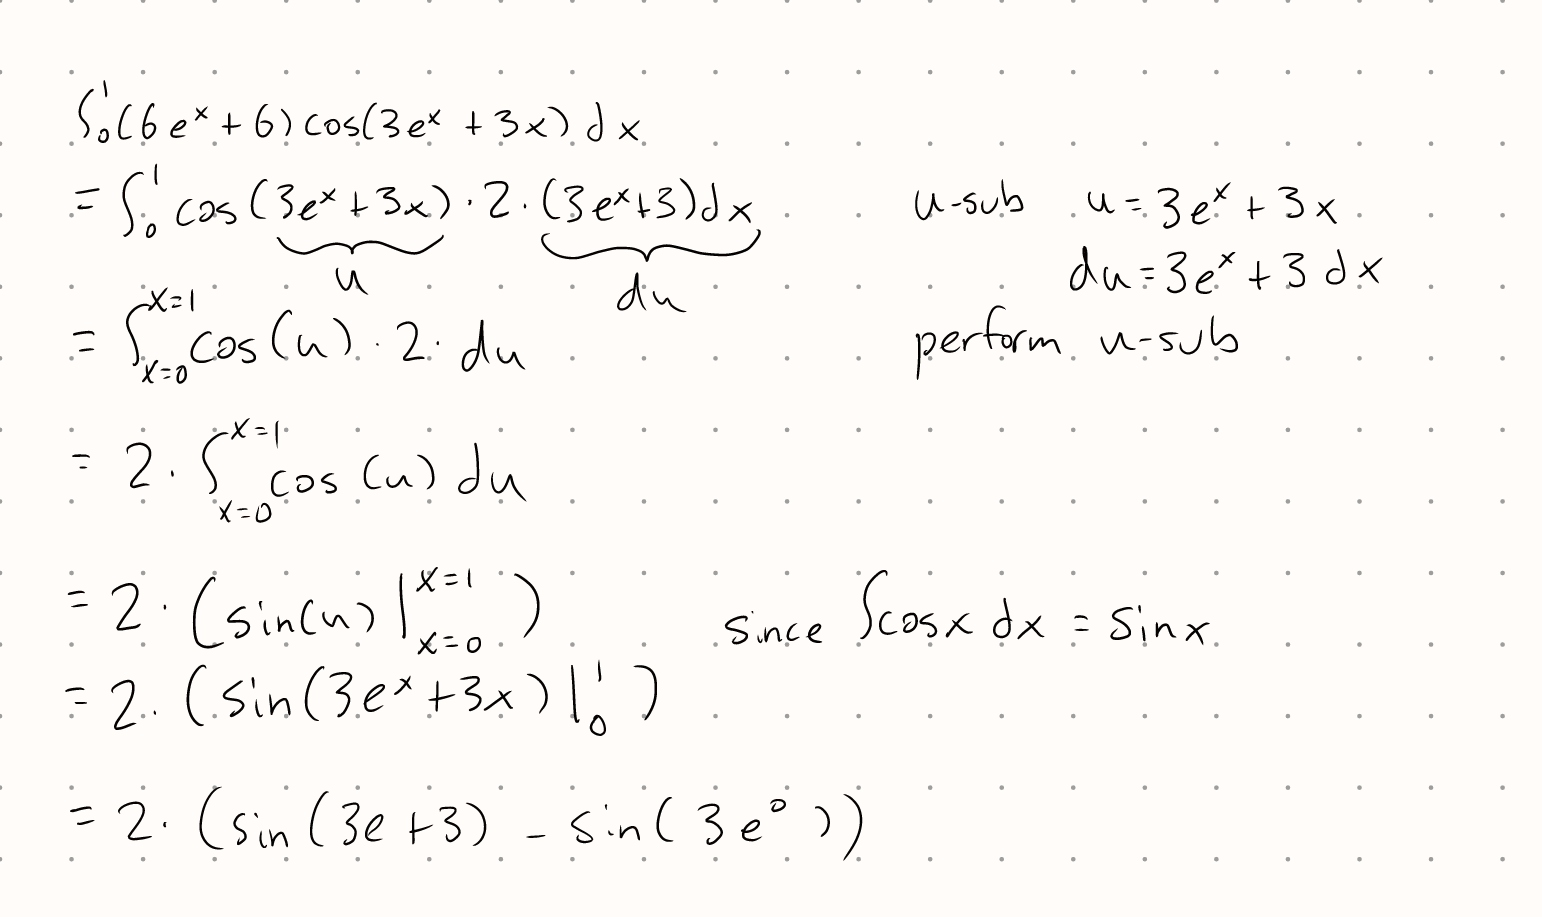 ∫₀¹(6eˣ + 6) cos(3eˣ + 3x) dx
= ∫₀¹ cos(3eˣ + 3x) · 2 · (3eˣ+3)dx    u-sub  u = 3eˣ + 3x
u    du    du = 3eˣ + 3 dx
= ∫ₓ₌₀ˣ⁼¹ cos(u) · 2 · du    perform u-sub
= 2 · ∫ₓ₌₀ˣ⁼¹ cos(u) du
= 2 · (sin(u) |ₓ₌₀ˣ⁼¹)    since ∫cosx dx = sinx
= 2 · (sin(3eˣ+3x) |₀¹)
= 2 · (sin(3e+3) - sin(3e⁰))